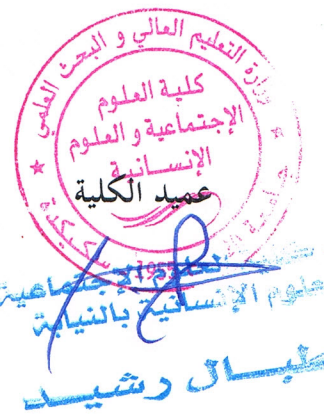 وزارة التعليم العالي و البحث العلمي
كلية العلوم
الإجتماعية و العلوم
الإنسانية
عميد الكلية
سكيكدة
العلوم الإجتماعية
العلوم الإنسانية بالنيابة
رشيد